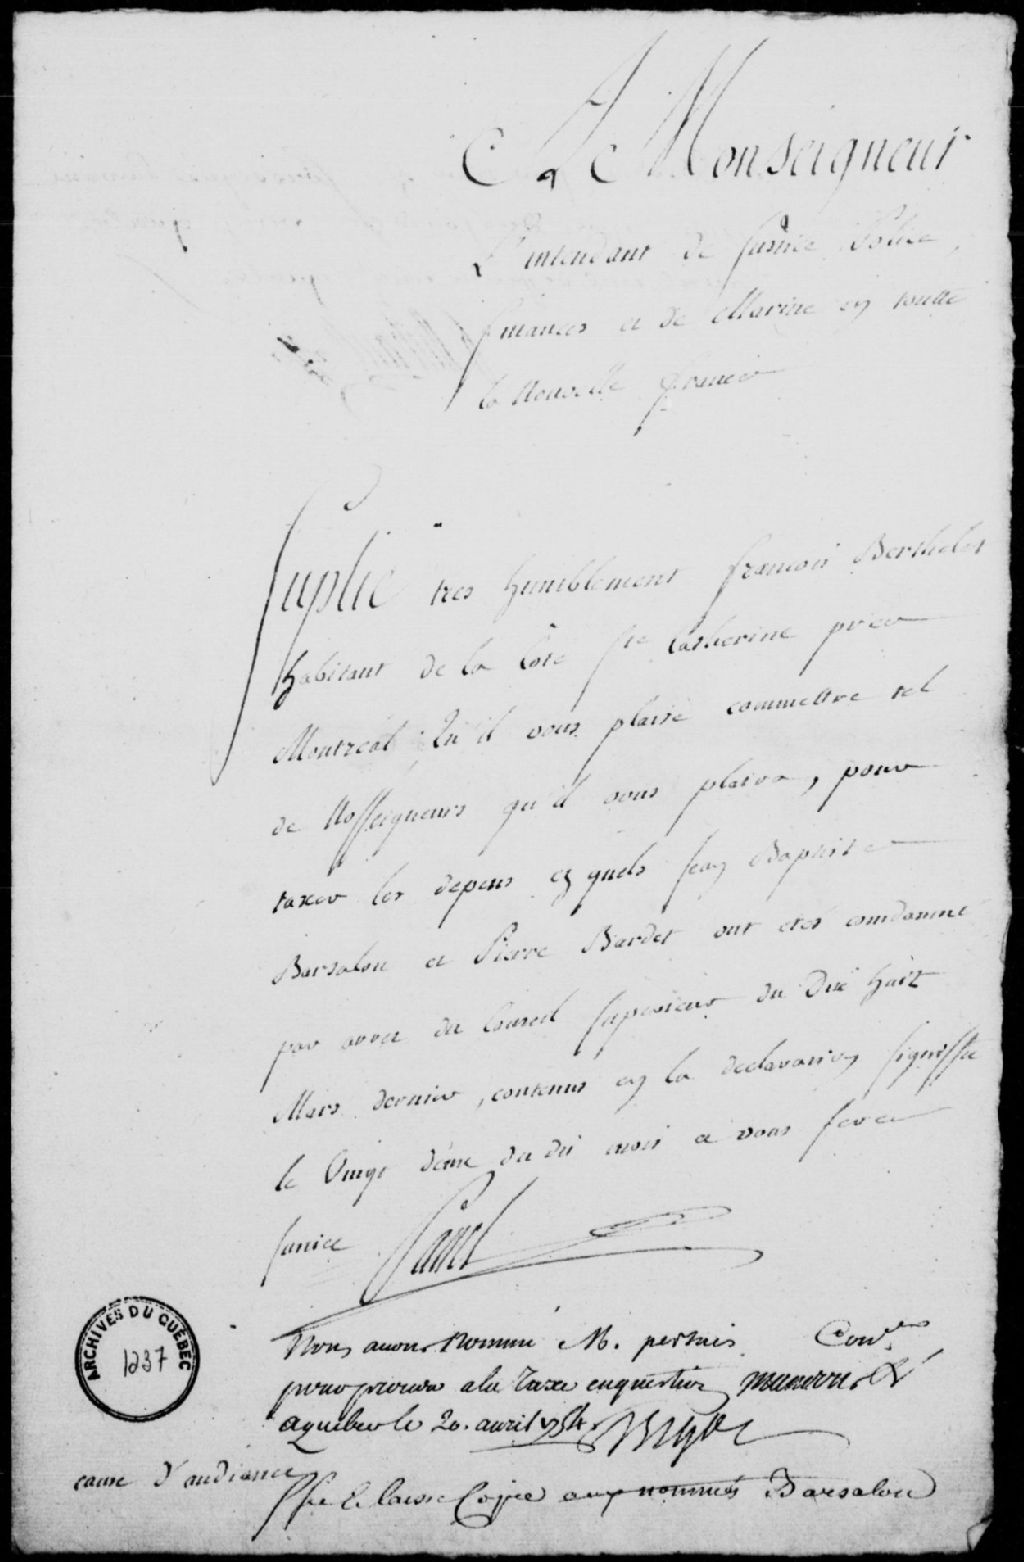 A Monseigneur
L'intendant de Justice Police,
finances et de Marine en toutte
la Nouvelle france
Suplie tres humblement francois Berthelet
habitant de la Cote Ste Catherine prea
Montreal Qu'il vous plaise commettre tel
de Nosseigneurs qu'il vous plaira, pour
taxer les depens es quels Jean Baptiste
Barsalou et Pierre Bardet ont etes condamné
par arret du Conseil superieur du Dix huit
Mars dernier, contenus en la declaration signiffiée
le Vingt deme du dit mois et vous ferez
Justice Panet
Nous avons Nommé M. pertuis Coner
pour proceder a la Taxe en question
a quebec le 20. avril 1754. Bigot
cause d'audiance
Sse & laissé Copie aux nommés Barsalou
ARCHIVES DU QUÉBEC
1237